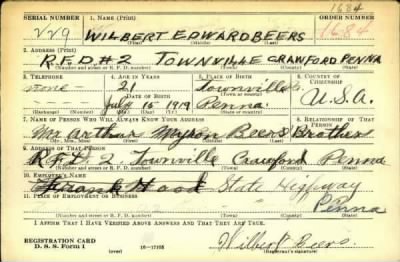 1684
SERIAL NUMBER 1. NAME (Print) ORDER NUMBER
229 WILBERT EDWARD BEERS 1684
(First) (Middle) (Last)
2. ADDRESS (Print)
R.F.D #2 TOWNVILLE CRAWFORD PENNA
(Number and street or R. F. D. number) (Town) (County) (State)
3. TELEPHONE 4. AGE IN YEARS 5. PLACE OF BIRTH 6. COUNTRY OF CITIZENSHIP
none 21 Townville
DATE OF BIRTH (Town or county)
July 15 1919 Penna. U.S.A.
(Exchange) (Number) (Mo.) (Day) (Yr.) (State or country)
7. NAME OF PERSON WHO WILL ALWAYS KNOW YOUR ADDRESS 8. RELATIONSHIP OF THAT PERSON
Mr Arthur Myron Beers Brother
(Mr., Mrs., Miss) (First) (Middle) (Last)
9. ADDRESS OF THAT PERSON
R.F.D. 2, Townville Crawford Penna
(Number and street or R. F. D. number) (Town) (County) (State)
10. EMPLOYER'S NAME
Frank Hood State Highway
11. PLACE OF EMPLOYMENT OR BUSINESS
Penna
(Number and street or R. F. D. number) (Town) (County) (State)
I AFFIRM THAT I HAVE VERIFIED ABOVE ANSWERS AND THAT THEY ARE TRUE.
REGISTRATION CARD
D. S. S. Form 1 (over) 16-17105 Wilbert Beers.